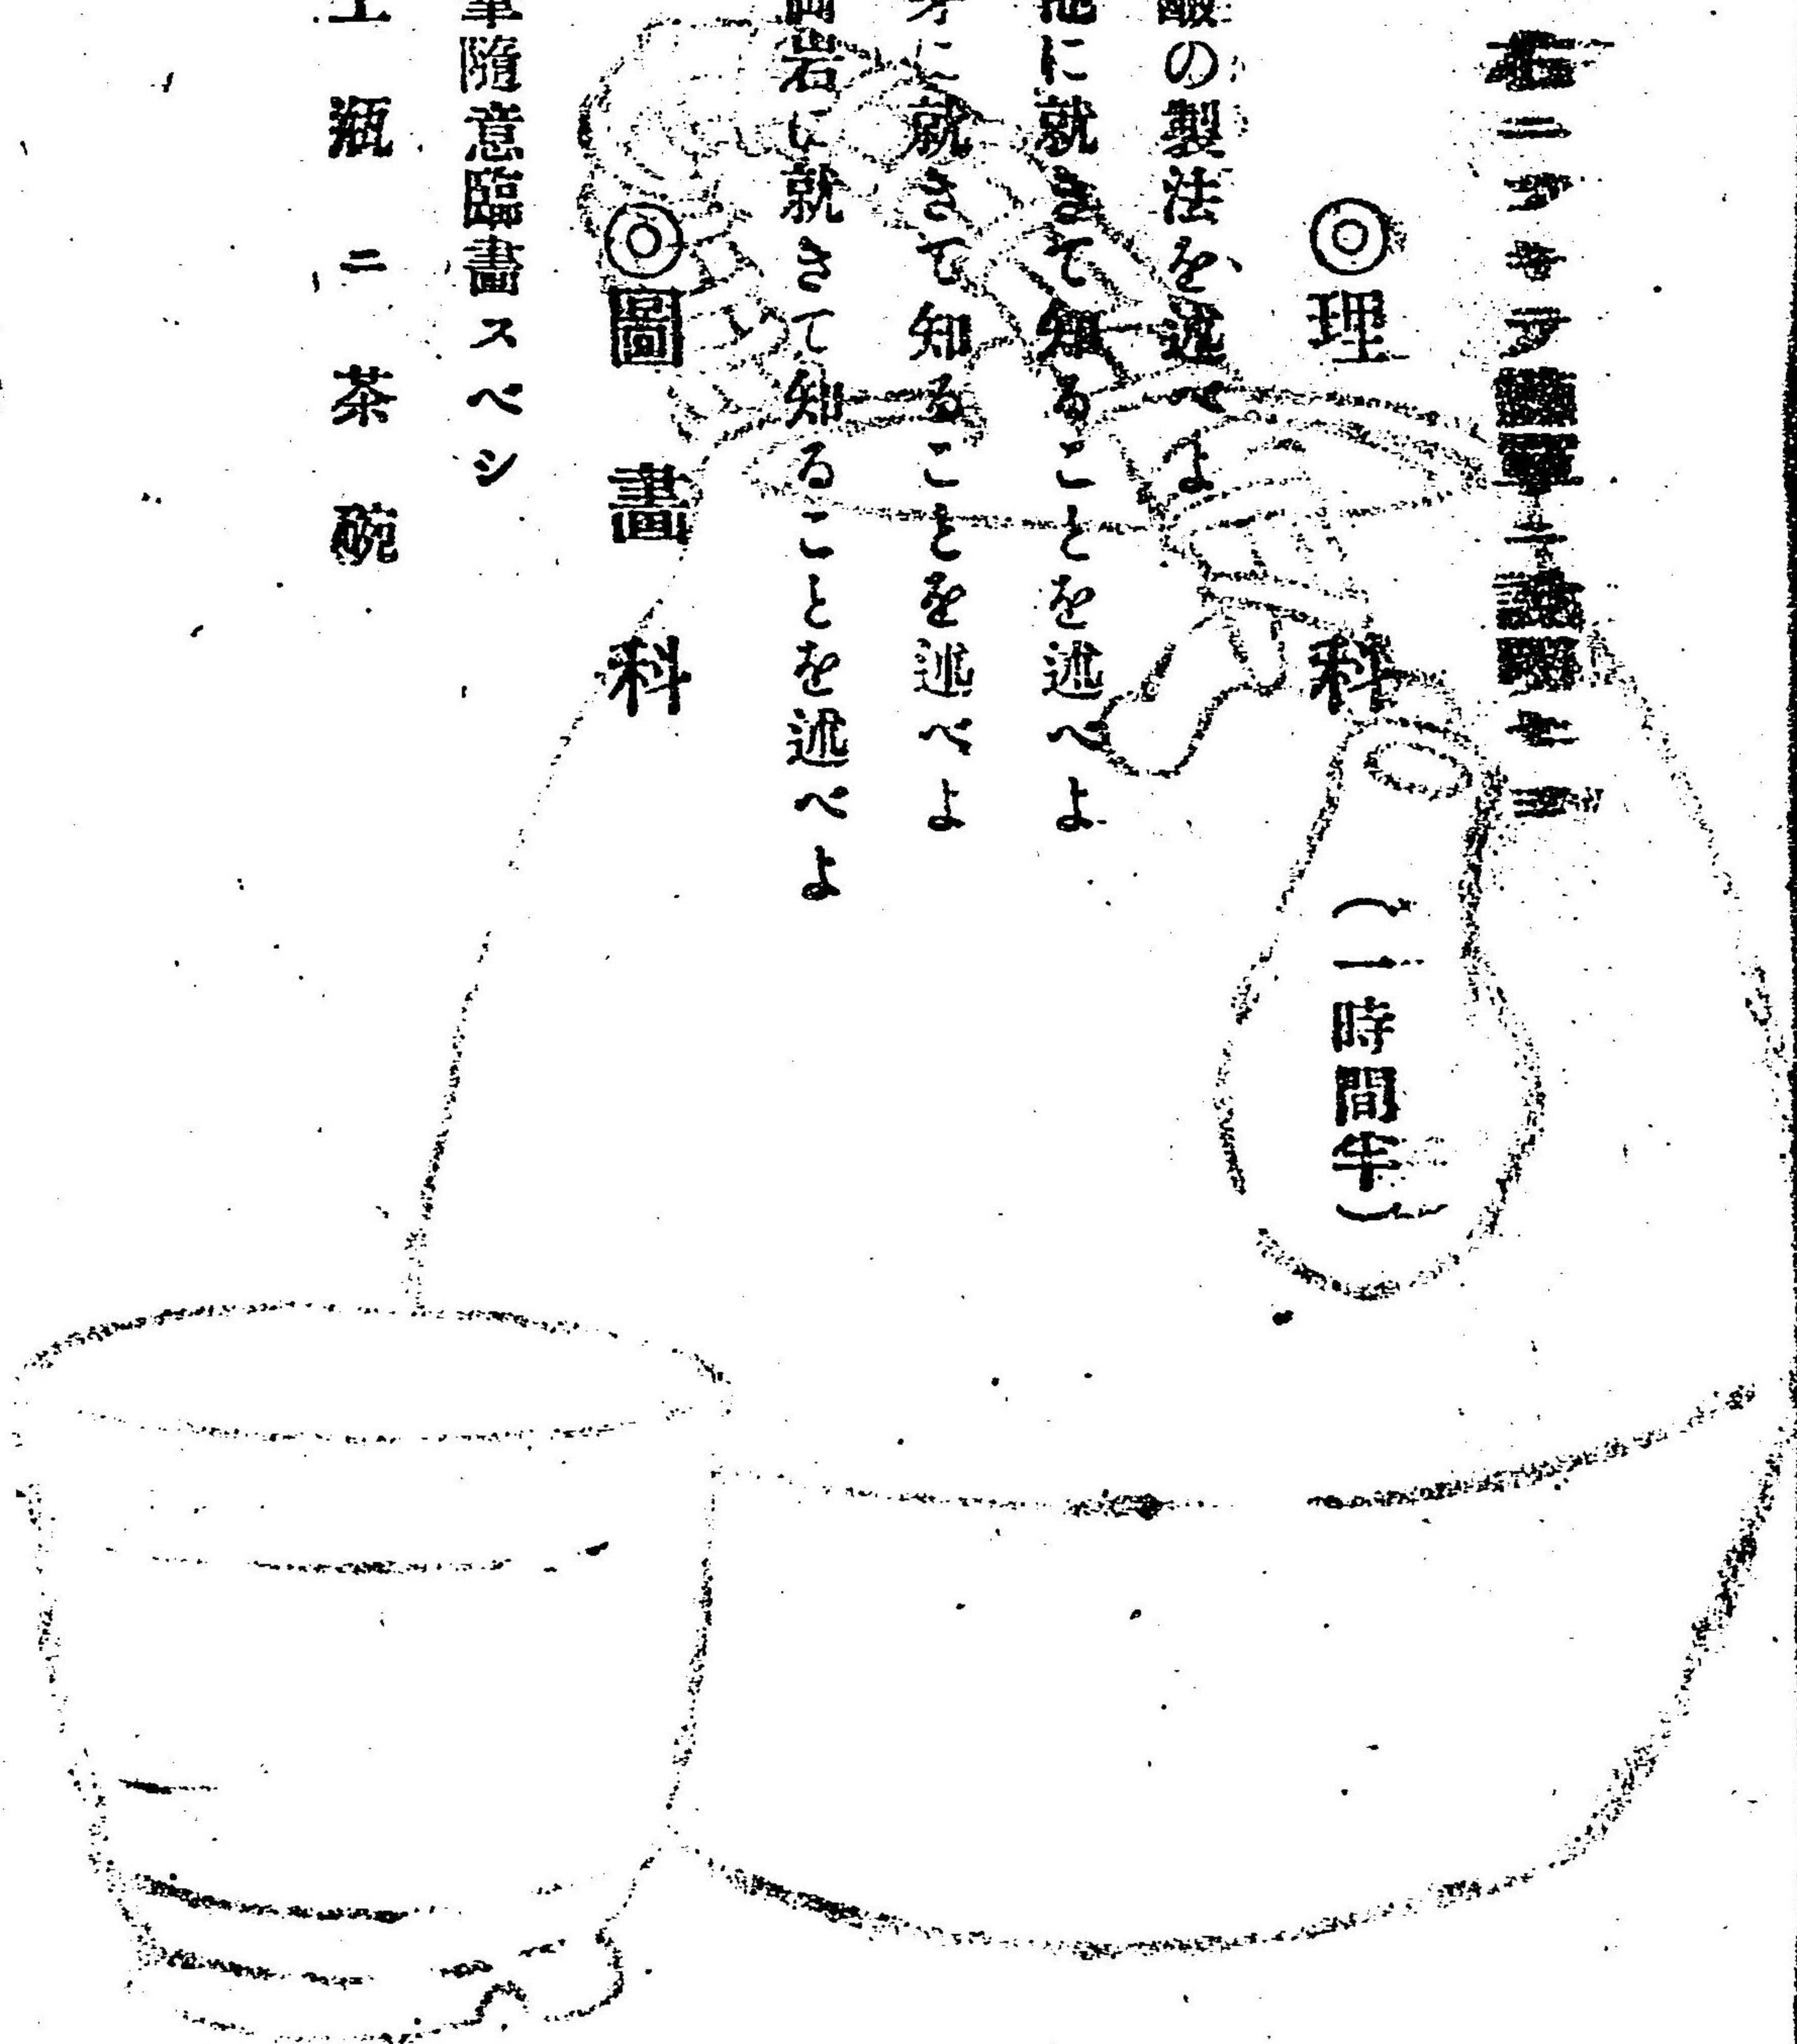 ◎理科（一時間半）
酸の製法を述べよ
池に就きて知ることを述べよ
に就きて知ることを述べよ
岩に就きて知ることを述べよ
◎圖畫科
筆隨意臨畫スベシ
土瓶ニ茶碗